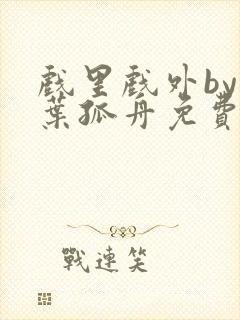 戲里戲外by
葉孤舟免費
戰連笑